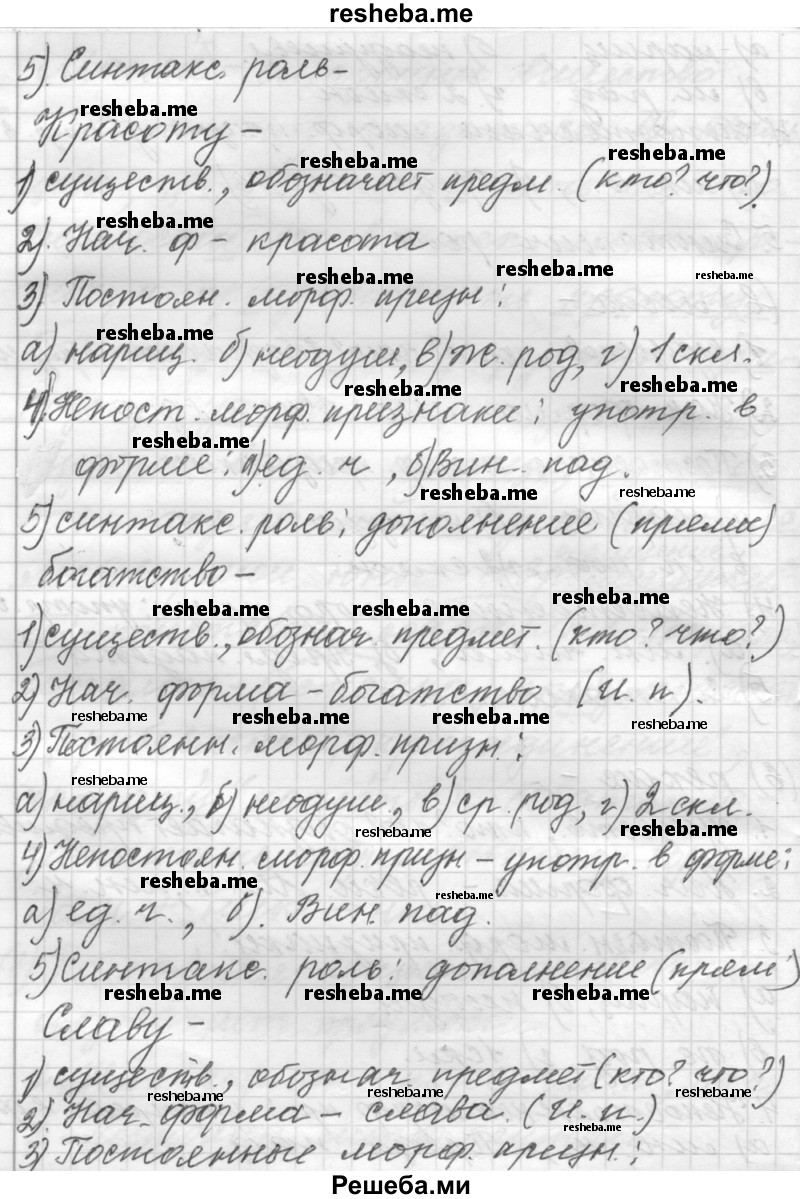 resheba.me
5). Синтакс. роль-
resheba.me
Красоту -
resheba.me resheba.me
1) существ., обозначает предм. (кто? что?).
resheba.me
2). Нач. ф - красота
resheba.me resheba.me resheba.me
3). Постоян. морф. призн:
resheba.me
а) нариц. б) неодуш, в) ж. род, г) 1 скл.
resheba.me resheba.me
4). Непост. морф. признаки: употр. в
resheba.me
форме: а) ед. ч, б) Вин. пад.
resheba.me resheba.me
5) синтакс. роль: дополнение (прямы)
богатство -
resheba.me resheba.me resheba.me
1) существ., обознач. предмет. (кто? что?)
2) Нач. форма - богатство (И. п).
resheba.me resheba.me resheba.me resheba.me
3) Постоянн. морф. призн.:
resheba.me
а) нариц., б) неодуш., в) ср. род, г) 2 скл.
resheba.me resheba.me
4) Непостоян. морф. призн - употр. в форме:
resheba.me resheba.me
а) ед. ч., б). Вин. пад.
5) Синтакс. роль: дополнение (прям.)
resheba.me resheba.me resheba.me
Славу -
1) существ., обознач. предмет (кто? что?)
resheba.me resheba.me resheba.me
2). Нач. форма - слава. (И. п.)
resheba.me
3) Постоянные морф. призн.:
Решеба.ми